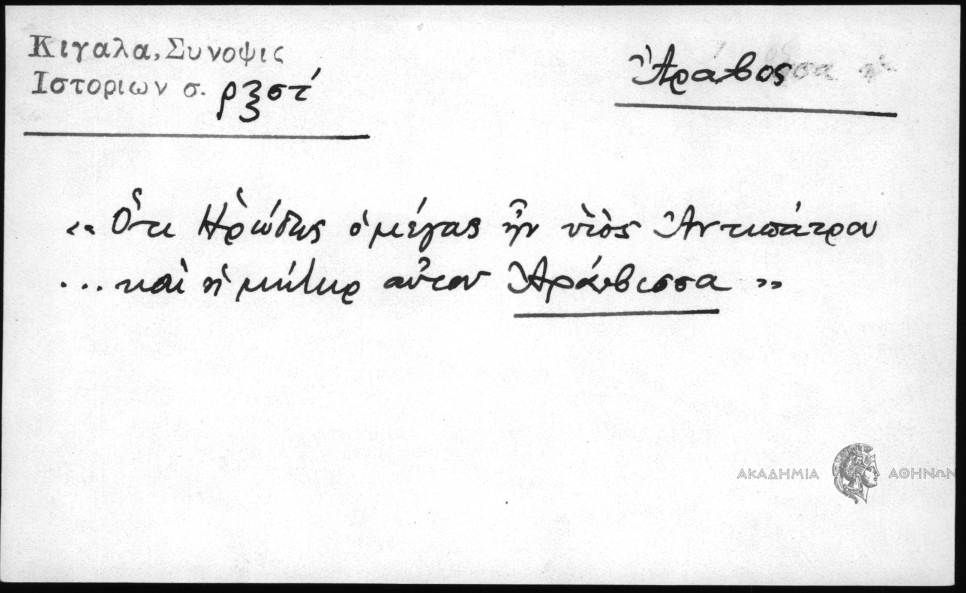 Κιγαλα, Συνοψις
Ιστοριων σ. ρξστ́
Ἄραβος
«Ὅτι Ἡρώδης ὁ μέγας ἦν υἱὸς Ἀντιπάτρου
... καὶ ἡ μήτηρ αὐτου Ἀράβισσα»
ΑΚΑΔΗΜΙΑ ΑΘΗΝΩΝ